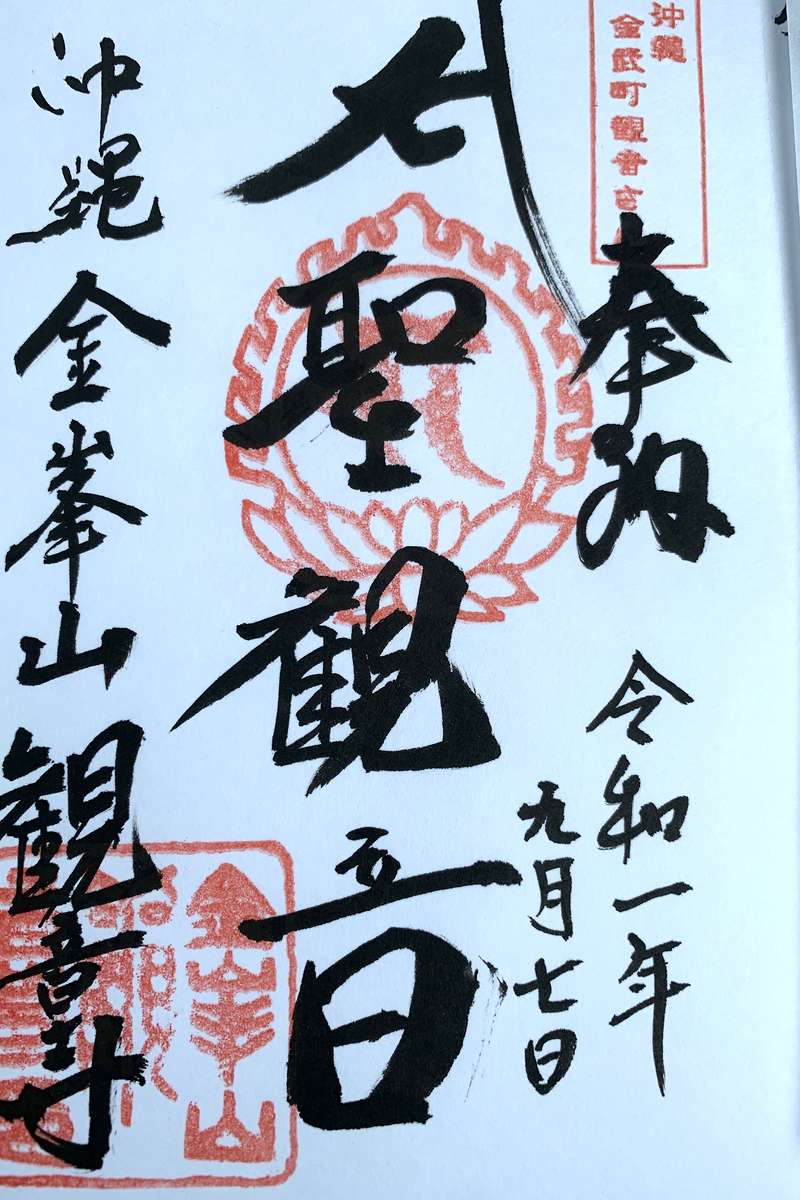 沖縄
金武町観音
奉納
令和一年
九月七日
聖観音
沖縄 金峯山 観音寺
金峯山